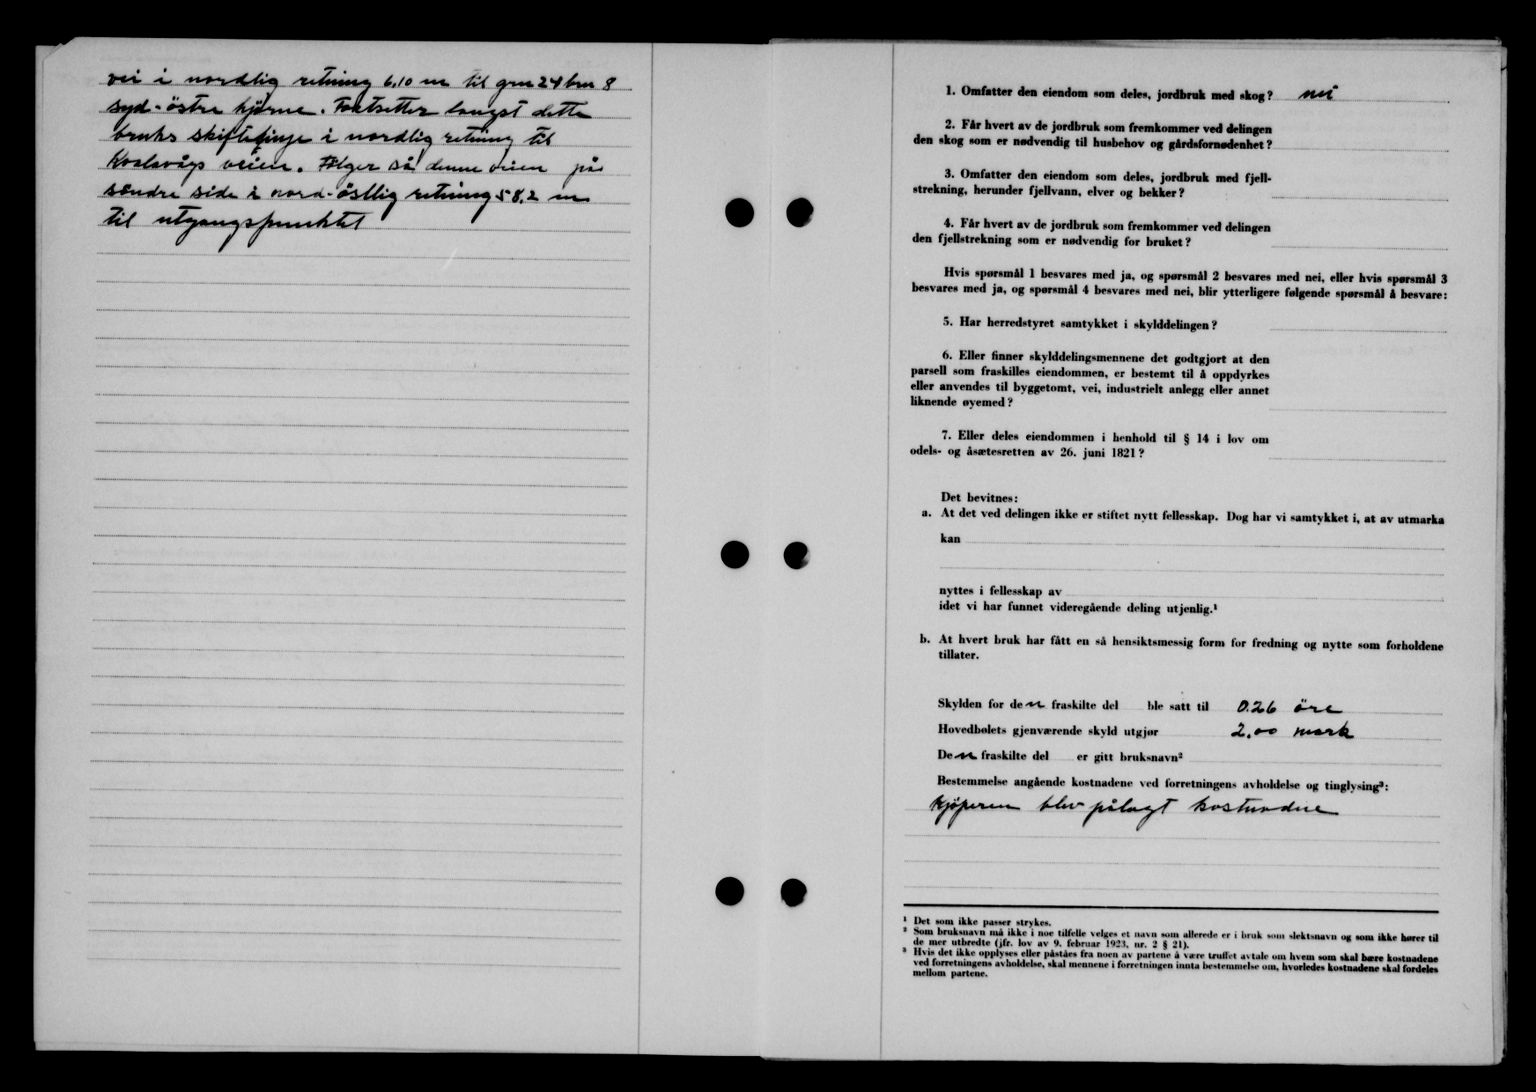 vei i nordlig retning 6,10 m til gnr 24 bnr 8
syd-östre hjörne. Fortsetter langst dette
bruks skiftelinje i nordlig retning til
Kvalavågs veien. Fölger så denne veien på
söndre side i nord-östlig retning 58,2 m
til utgangspunktet
1. Omfatter den eiendom som deles, jordbruk med skog? nei
2. Får hvert av de jordbruk som fremkommer ved delingen
den skog som er nødvendig til husbehov og gårdsfornødenhet?
3. Omfatter den eiendom som deles, jordbruk med fjell-
strekning, herunder fjellvann, elver og bekker?
4. Får hvert av de jordbruk som fremkommer ved delingen
den fjellstrekning som er nødvendig for bruket?
Hvis spørsmål 1 besvares med ja, og spørsmål 2 besvares med nei, eller hvis spørsmål 3
besvares med ja, og spørsmål 4 besvares med nei, blir ytterligere følgende spørsmål å besvare:
5. Har herredstyret samtykket i skylddelingen?
6. Eller finner skylddelingsmennene det godtgjort at den
parsell som fraskilles eiendommen, er bestemt til å oppdyrkes
eller anvendes til byggetomt, vei, industrielt anlegg eller annet
liknende øyemed?
7. Eller deles eiendommen i henhold til § 14 i lov om
odels- og åsætesretten av 26. juni 1821?
Det bevitnes:
a. At det ved delingen ikke er stiftet nytt fellesskap. Dog har vi samtykket i, at av utmarka
kan
nyttes i fellesskap av
idet vi har funnet videregående deling utjenlig.¹
b. At hvert bruk har fått en så hensiktsmessig form for fredning og nytte som forholdene
tillater.
Skylden for den fraskilte del ble satt til 0.26 öre
Hovedbølets gjenværende skyld utgjør 2,00 mark
Den fraskilte del er gitt bruksnavn²
Bestemmelse angående kostnadene ved forretningens avholdelse og tinglysing³:
Kjøperen blev pålagt kostnadne
¹ Det som ikke passer strykes.
² Som bruksnavn må ikke i noe tilfelle velges et navn som allerede er i bruk som slektsnavn og som ikke hører til
de mer utbredte (jfr. lov av 9. februar 1923, nr. 2 § 21).
³ Hvis det ikke opplyses eller påståes fra noen av partene å være truffet avtale om hvem som skal bære kostnadene
ved forretningens avholdelse, skal mennene i forretningen innta bestemmelse om, hvorledes kostnadene skal fordeles
mellom partene.